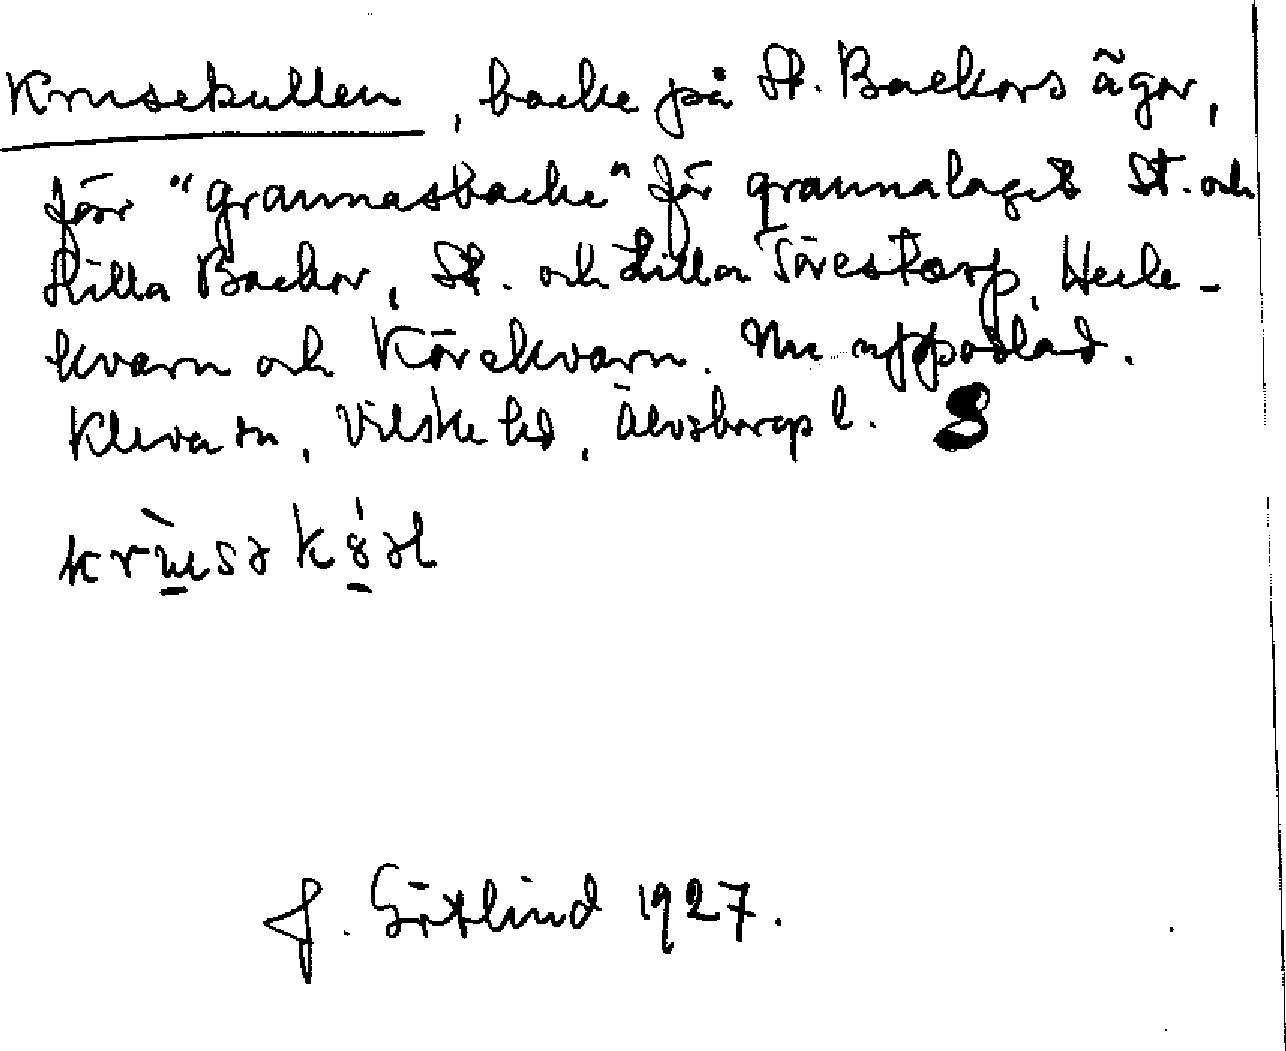 Krusekullen, backe på St. Backors ägor,
förr "grannasbacke" för grannalaget St. och
Lilla Backor, St. och Lilla Törestorp, Hede-
kvarn och Körekvarn. Nu uppodlad.
Kleva sn, Vilske hd, Älvsborgs l. S
J. Götlind 1927.